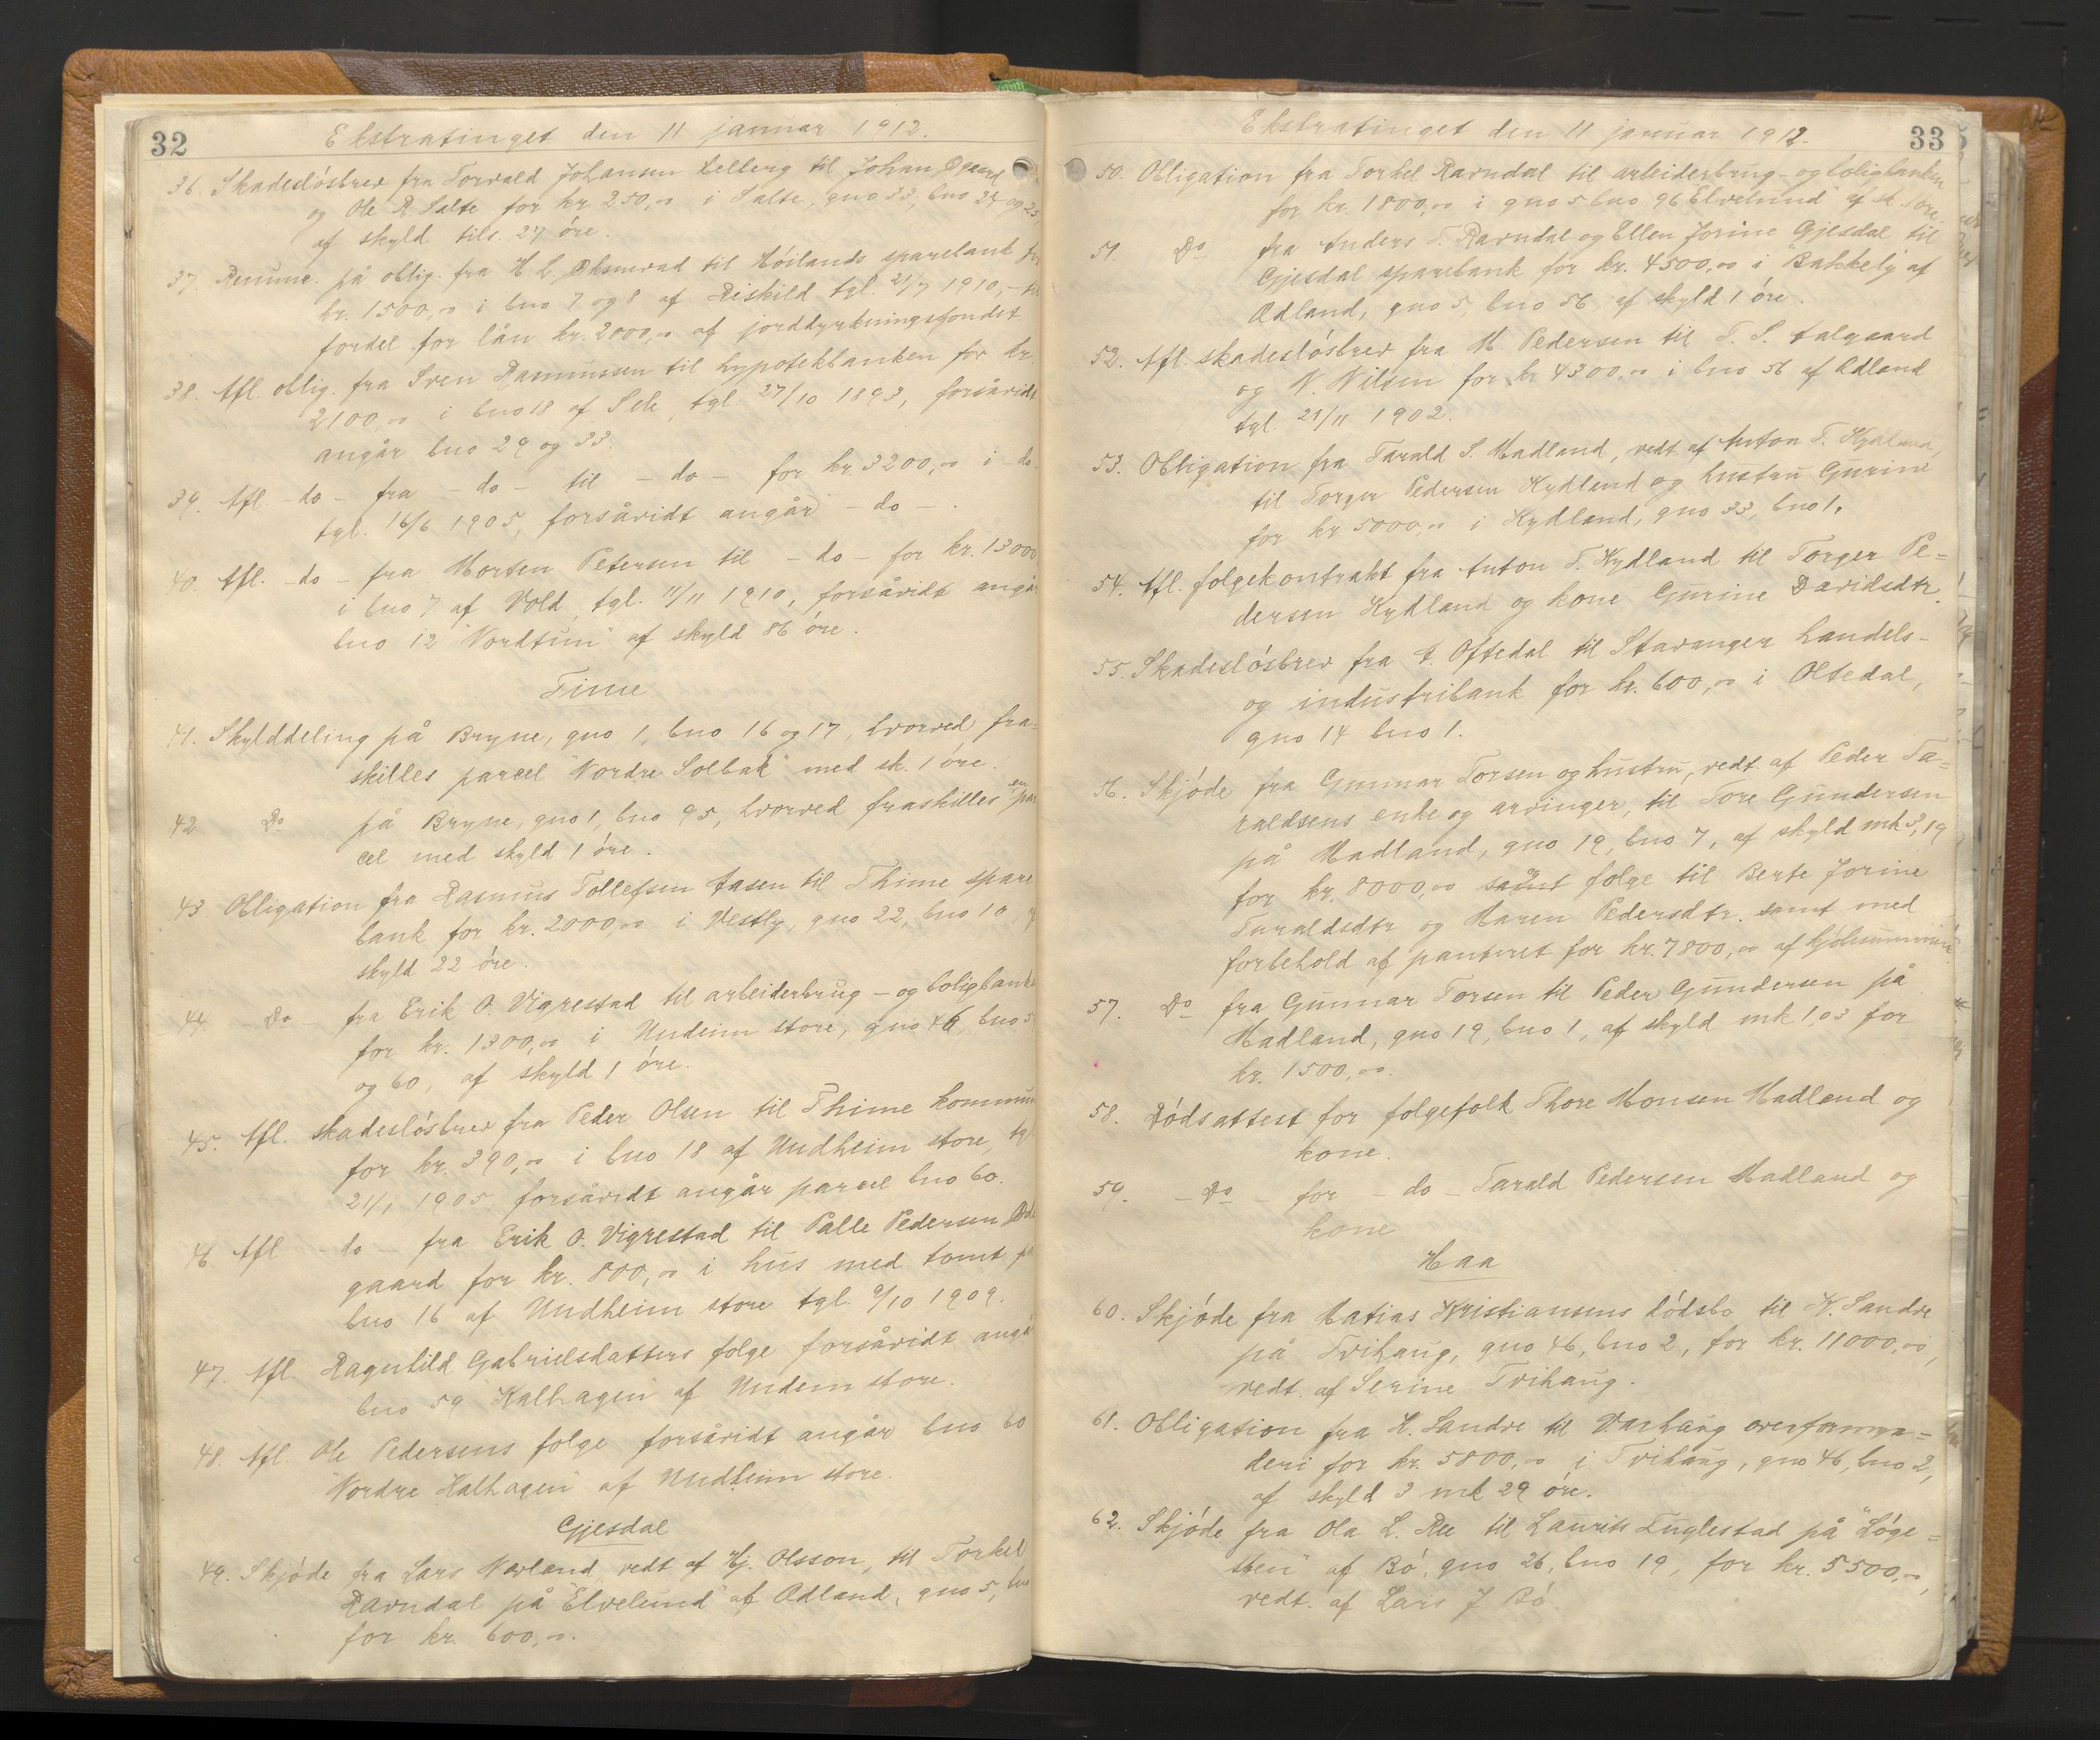 32
Ekstratinget den 11 januar 1912.
36. Skadesløsbrev fra Torvald Johansen til Johan
og Ole R Salte for kr. 250,00 i Salte, gno 33, bno 24 og 25
af skyld tils. 27 øre.
37. Renunc. på oblig. fra H L Øksnevad til Høilands sparebank for
kr. 1500,00 i bno 7 og 8 af Riskild tgl. 21/7 1910, - til
fordel for lån kr. 2000,00 af jorddyrkningsfondet
38. Afl. oblig. fra Sven Rasmussen til hypotekbanken for kr.
2100,00 i bno 18 af Sele, tgl. 27/10 1893, forsåvidt
angår bno 29 og 33.
39. Afl. - do - fra - do - til - do - for kr. 3200,00 i - do -
tgl. 16/6 1905, forsåvidt angår - do - .
40. Afl. - do - fra Morten Petersen til - do - for kr. 13000
i bno 7 af Vold, tgl. 11/11 1910, forsåvidt angår
bno 12 "Nordtun" af skyld 86 øre.
Time
41. Skylddeling på Bryne, gno 1, bno 16 og 17, hvorved fra=
skilles parcel "Nordre Solbak" med sk. 1 øre.
42 Do på Bryne, gno 1, bno 95, hvorved fraskilles en par
cel med skyld 1 øre.
43 Obligation fra Rasmus Tollefsen Aasen til Thime spare
bank for kr. 2000,00 i Vestly, gno 22, bno 10, af
skyld 22 øre.
44 Do fra Erik O. Vigrestad til arbeiderbrug - og boligbanken
for kr. 1300,00 i Undeim store, gno 46, bno 5
og 60, af skyld 1 øre.
45. Afl. skadesløsbrev fra Peder Olsen til Thime kommune
for kr. 390,00 i bno 18 af Undheim store, tgl
21/1 1905, forsåvidt angår parcel bno 60.
46 Afl - do - fra Erik O. Vigrestad til Palle Pedersen
gaard for kr. 800,00 i hus med tomt på
bno 16 af Undheim store tgl. 9/10 1909.
47. Afl. Ragnhild Gabrielsdatters følge forsåvidt angår
bno 59 "Kalhagen" af Undem store.
48. Afl. Ole Pedersens følge forsåvidt angår bno 60
"Nordre Kalhagen" af Undheim store.
Gjesdal
49. Skjøde fra Lars Norland, vedt af Hj. Olsson, til Torkel
Ravndal på "Elvelund" af Ødland, gno 5, bno
for kr. 600,00.
33
Ekstratinget den 11 januar 1912.
50. Obligation fra Torkel Ravndal til arbeiderbrug - og boligbanken
for kr. 1800,00 i gno 5 bno 96 "Elvelund" af sk. 1 øre.
51. Do fra Anders T. Ravndal og Ellen Jorine Gjesdal til
Gjesdal sparebank for kr. 4500,00 i "Bakkely" af
Ødland, gno 5, bno 56, af skyld 1 øre.
52. Afl. skadesløsbrev fra M. Pedersen til T. S. Aalgaard
og N. Nilsen for kr 4300,00 i bno 56 af Ødland
tgl. 21/11 1902.
53. Obligation fra Tarald S. Madland, vedt. af Anton T. Hydland,
til Torger Pedersen Kydland og hustru Gurine
for kr 5000,00 i Kydland, gno 33, bno 1.
54. Afl. følgekontrakt fra Anton T. Kydland til Torger Pe=
dersen Kydland og kone Gurine Davidsdtr.
55. Skadesløsbrev fra A. Oftedal til Stavanger handels-
og industribank for kr. 600,00 i Oltedal,
gno 14 bno 1.
56. Skjøde fra Gunnar Torsen og hustru, vedt. af Peder Ta=
raldsens enke og arvinger, til Tore Gundersen
på Madland, gno 19, bno 7, af skyld mk 3,19
for kr. 8000,00 samt følge til Berte Jorine
Taraldsdtr og Maren Pedersdtr. samt med
forbehold af panteret for kr. 7800,00 af kjøbesummen
57. Do fra Gunnar Torsen til Peder Gundersen på
Madland, gno 19, bno 1, af skyld mk 1,03 for
kr. 1500,00.
58. Dødsattest for følgefolk Thore Monsen Madland og
kone.
59. - Do - for - do - Tarald Pedersen Madland og
kone
Haa
60. Skjøde fra Matias Kristiansens dødsbo til K. Sandve
på Tvihaug, gno 46, bno 2, for kr. 11000,00,
vedt. af Serine Tvihaug.
61. Obligation fra K. Sandve til Varhaug overformyn=
deri for kr. 5800,00 i Tvihaug, gno 46, bno 2,
af skyld 3 mk 29 øre.
62. Skjøde fra Ola L. Ree til Laurits Fuglestad på "Løge=
sten" af Bø, gno 26, bno 19, for kr. 5500,00,
vedt. af Lars J. Bø.